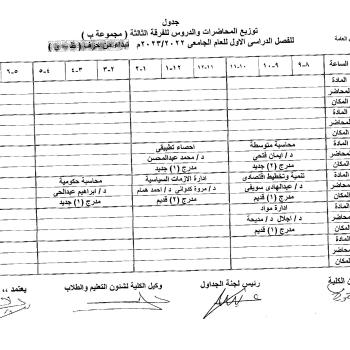 جدول
توزيع المحاضرات والدروس للفرقة الثالثة ( مجموعة ب )
للفصل الدراسى الاول للعام الجامعى ٢٠٢٣/٢٠٢٢م
العامة
الساعة ٩-٨ ١٠-٩ ١١-١٠ ١٢-١١ ١-١٢ ٢-١ ٣-٢ ٤-٣ ٥-٤ ٦-٥
المادة
المحاضر
المكان
المادة
المحاضر
المكان
المادة محاسبة متوسطة احصاء تطبيقى
المحاضر د / ايمان فتحى د / محمد عبدالمحسن
المكان مدرج (٢) جديد مدرج (١) جديد
المادة تنمية وتخطيط اقتصادى ادارة الازمات السياسية محاسبة حكومية
المحاضر د / عبدالهادى سويفى د / مروة كدوانى / د / احمد همام د / ابراهيم عبدالحى
المكان مدرج (٢) قديم مدرج (١) قديم مدرج (١) جديد
المادة ادارة مواد
المحاضر د / اجلال د / مديحة
المكان مدرج (١) قديم
المادة
المحاضر
المكان
رئيس لجنة الجداول
وكيل الكلية لشئون التعليم والطلاب
يعتمد ،،